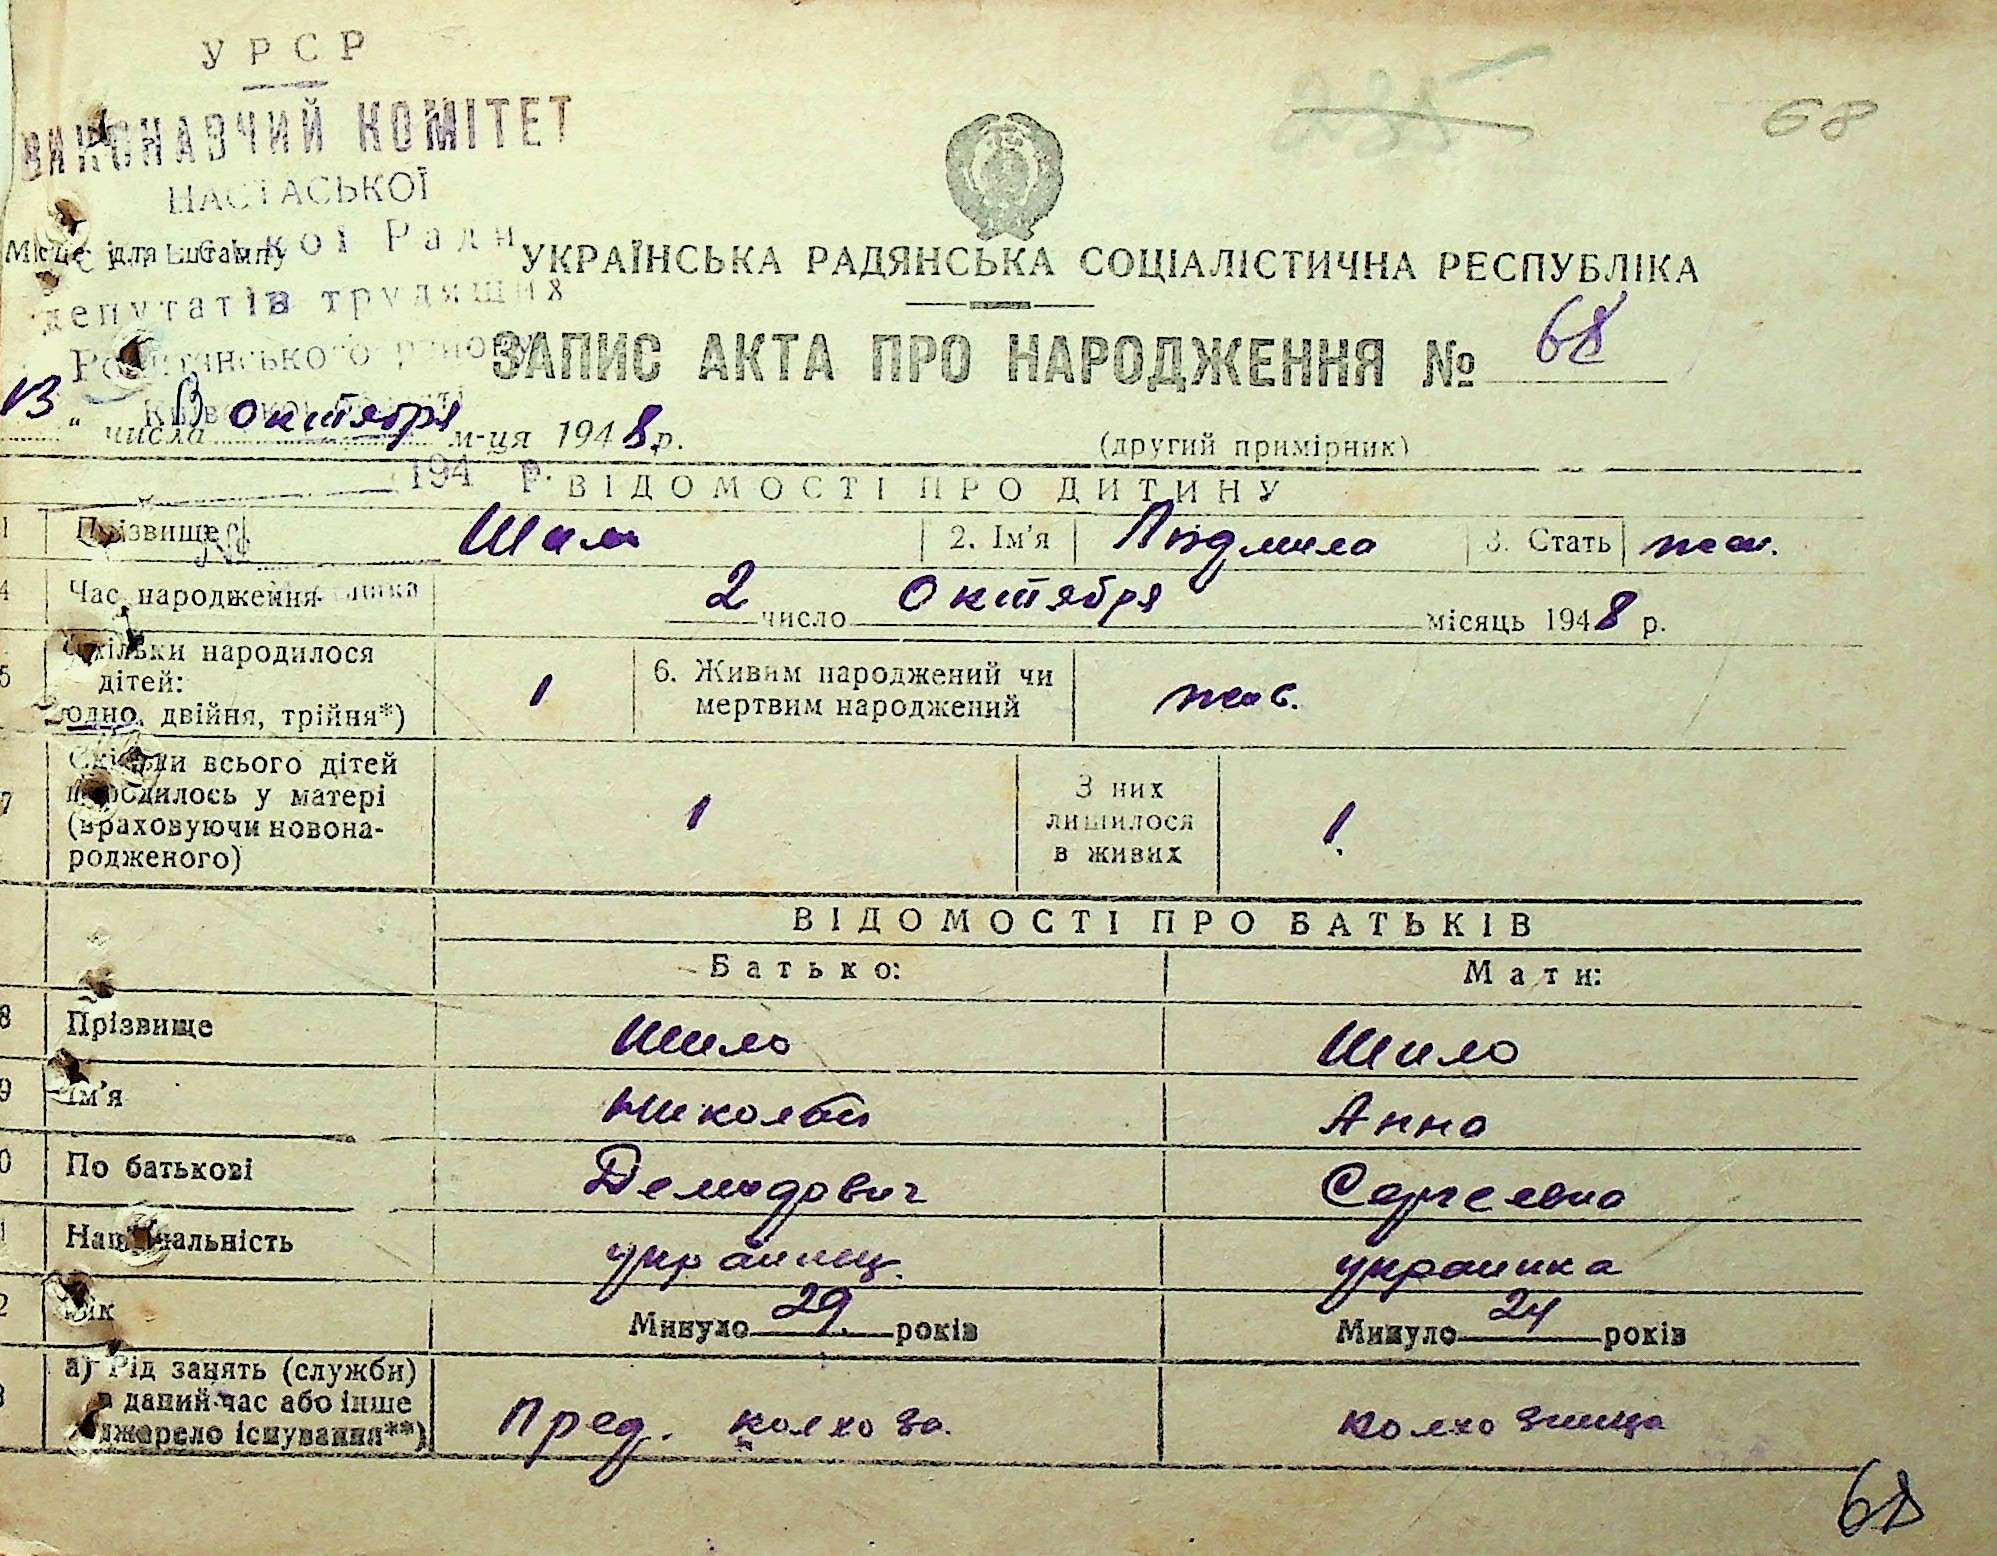 УРСР
ВИКОНАВЧИЙ КОМІТЕТ
НАСТАСЬКОЇ
сільської Ради
депутатів трудящих
району
194 р.
235
68
Місце для штампу
УКРАЇНСЬКА РАДЯНСЬКА СОЦІАЛІСТИЧНА РЕСПУБЛІКА
ЗАПИС АКТА ПРО НАРОДЖЕННЯ № 68
13 " числа октября м-ця 1948 р.
(другий примірник)
ВІДОМОСТІ ПРО ДИТИНУ
1 Прізвище 2. Ім'я Людмила 3. Стать жен.
4 Час народження 2 число Октября місяць 1948 р.
5 Скільки народилося дітей: одно, двійня, трійня*) 1 6. Живим народжений чи мертвим народжений жив.
7 Скільки всього дітей народилось у матері (враховуючи новонародженого) 1 З них лишилося в живих 1.
ВІДОМОСТІ ПРО БАТЬКІВ
Батько: Мати:
8 Прізвище Шило Шило
9 Ім'я Николай Анна
0 По батькові Демидович Сергеевна
1 Національність украинец. украинка
2 Вік Минуло 29. років Минуло 24 років
3 а) Рід занять (служби) в даний час або інше джерело існування**) Пред. колхоза. колхозница
68